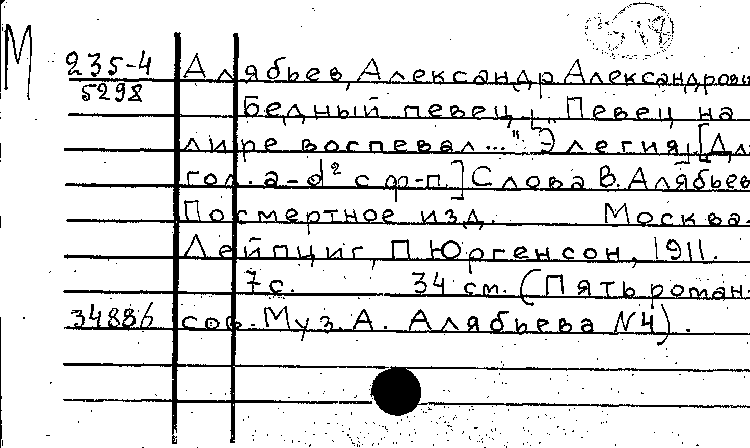 М
518
235-4 Алябьев, Александр Александрови
5298
Бедный певец. „Певец на
лире воспевал..." Элегия. [Для
гол. a-d² с ф-п.] Слова В. Алябьев
Посмертное изд. Москва-
Лейпциг, П. Юргенсон, 1911.
7 с. 34 см. (Пять роман-
34886 сов. Муз. А. Алябьева №4).